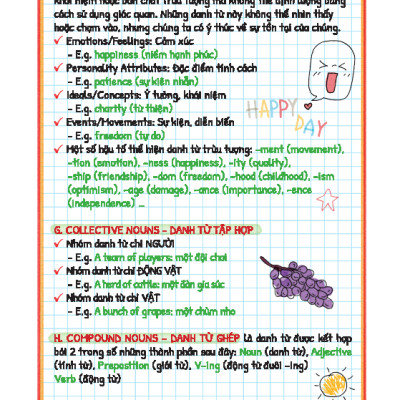 khái niệm hoặc bản chất trừu tượng mà không thể định lượng bằng
cách sử dụng giác quan. Những danh từ này không thể nhìn thấy
hoặc chạm vào, nhưng chúng ta có ý thức về sự tồn tại của chúng.
✓ Emotions/Feelings: Cảm xúc
- E.g. happiness (niềm hạnh phúc)
✓ Personality Attributes: Đặc điểm tính cách
- E.g. patience (sự kiên nhẫn)
✓ Ideals/Concepts: Ý tưởng, khái niệm
- E.g. charity (từ thiện)
✓ Events/Movements: Sự kiện, diễn biến
- E.g. freedom (tự do)
HAPPY DAY
✓ Một số hậu tố thể hiện danh từ trừu tượng: -ment (movement),
-tion (emotion), -ness (happiness), -ity (quality),
-ship (friendship), -dom (freedom), -hood (childhood), -ism
(optimism), -age (damage), -ance (importance), -ence
(independence) ...
G. COLLECTIVE NOUNS - DANH TỪ TẬP HỢP
✓ Nhóm danh từ chỉ NGƯỜI
- E.g. A team of players: một đội chơi
✓ Nhóm danh từ chỉ ĐỘNG VẬT
- E.g. A herd of cattle: một đàn gia súc
✓ Nhóm danh từ chỉ VẬT
- E.g. A bunch of grapes: một chùm nho
H. COMPOUND NOUNS - DANH TỪ GHÉP Là danh từ được kết hợp
bởi 2 trong số những thành phần sau đây: Noun (danh từ), Adjective
(tính từ), Preposition (giới từ), V-ing (động từ đuôi -ing)
Verb (động từ)